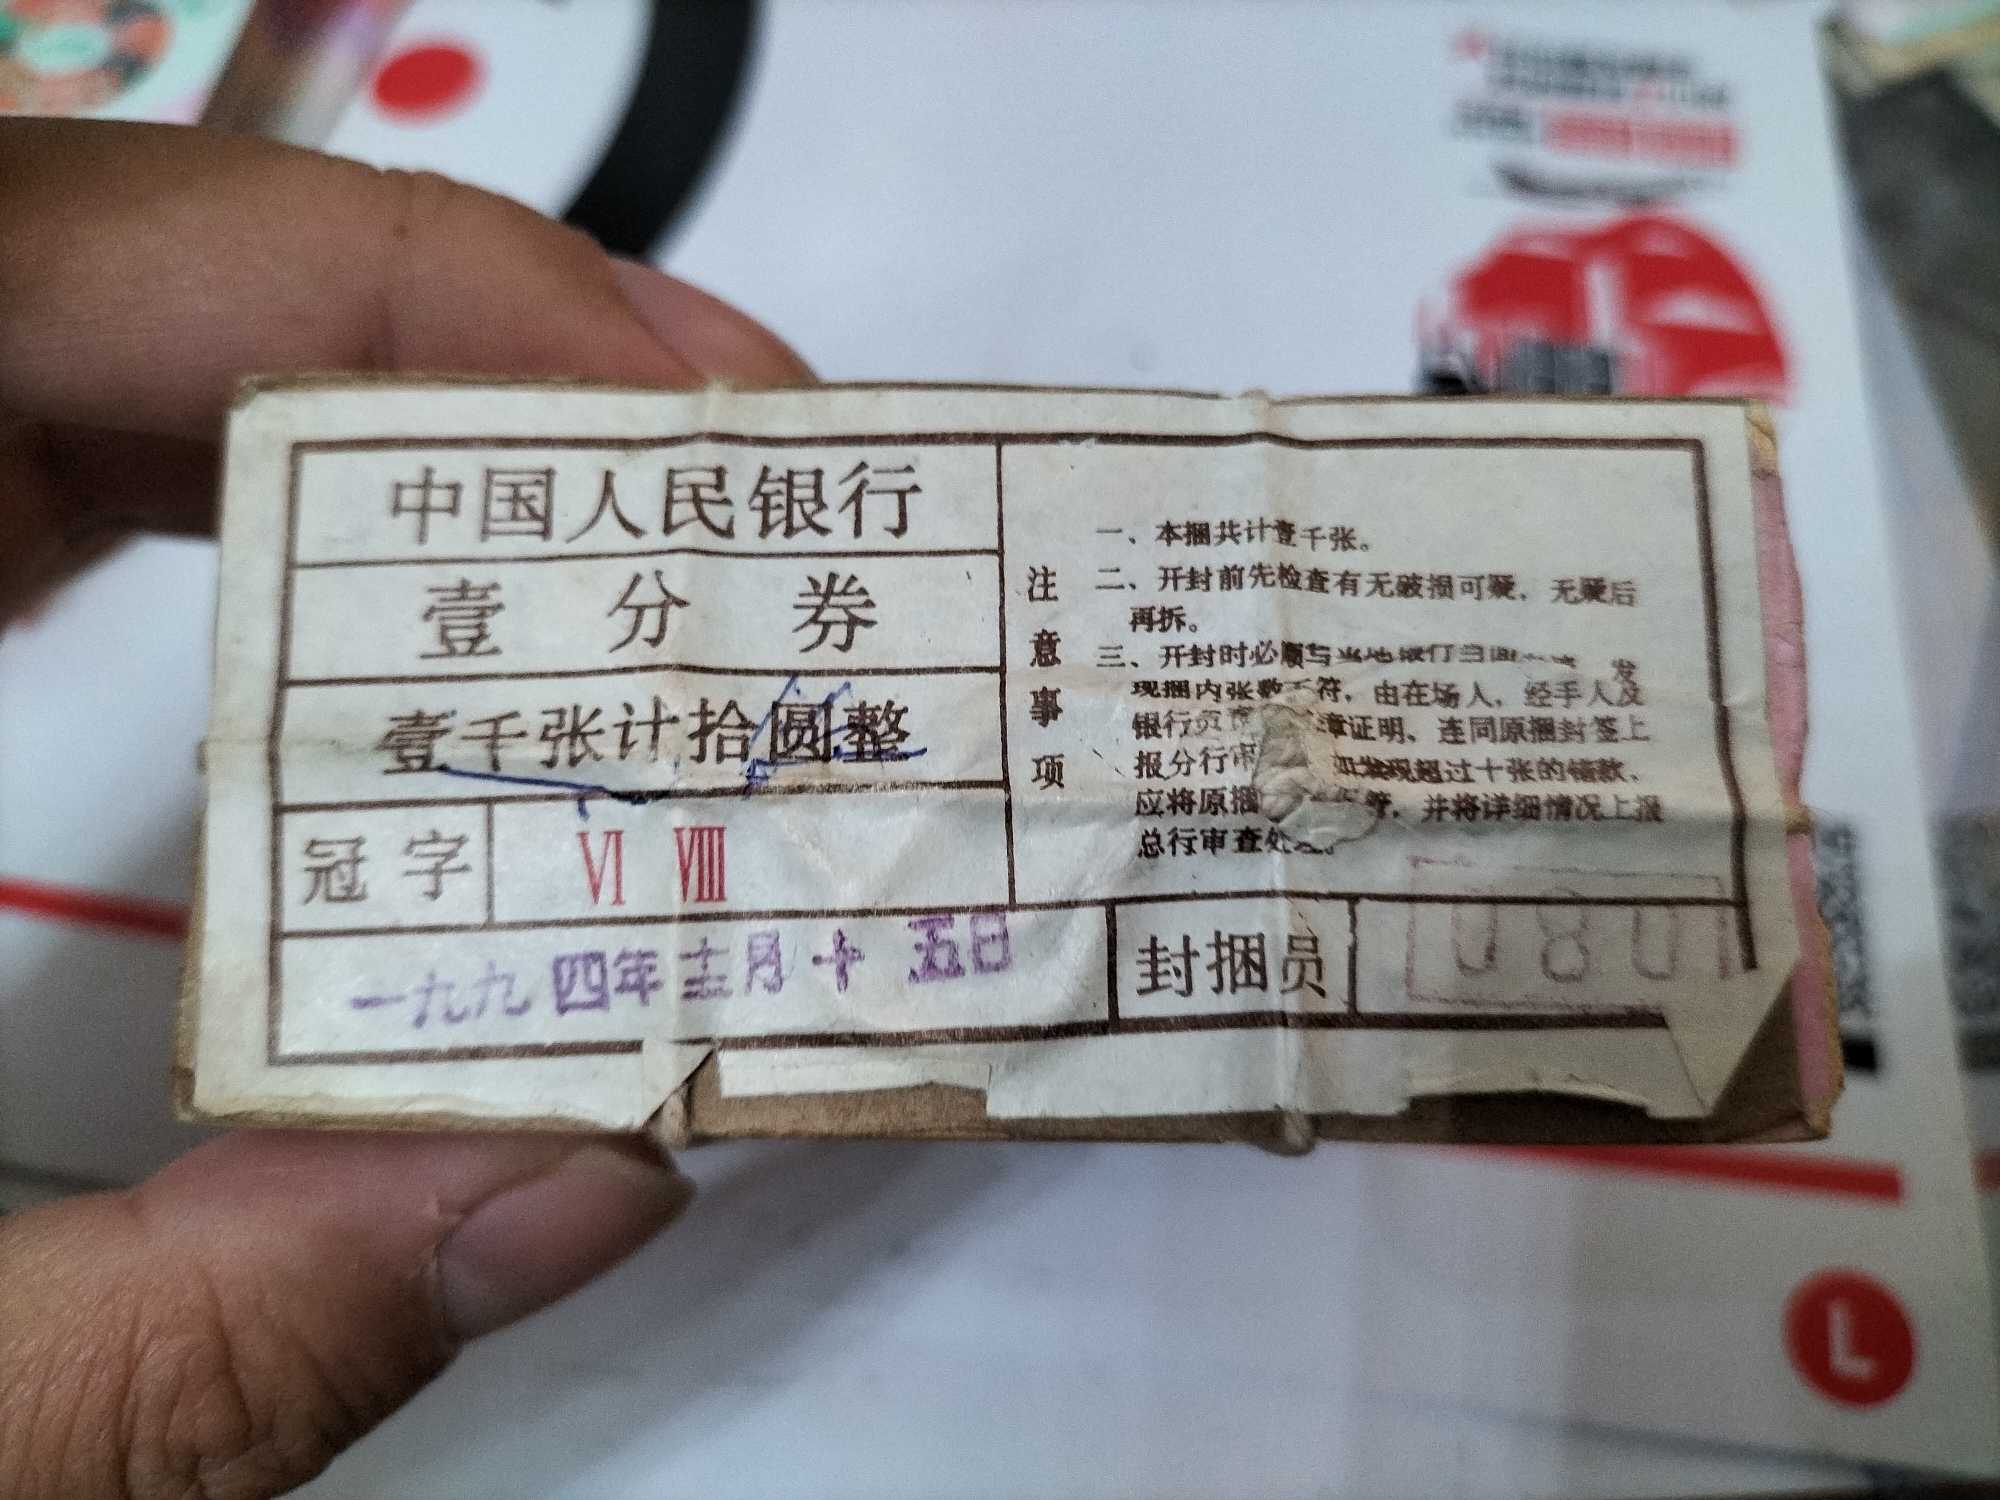 中国人民银行
壹分券
壹千张计拾圆整
冠字 Ⅵ Ⅷ
一九九四年十二月十五日
注意事项
一、本捆共计壹千张。
二、开封前先检查有无破损可疑，无疑后
再拆。
三、开封时必须与当地银行当面 发
现捆内张数不符，由在场人，经手人及
银行负责 章证明、连同原捆封签上
报分行审 如发现超过十张的错款，
应将原捆 等，并将详细情况上报
总行审查处理。
封捆员 080
L